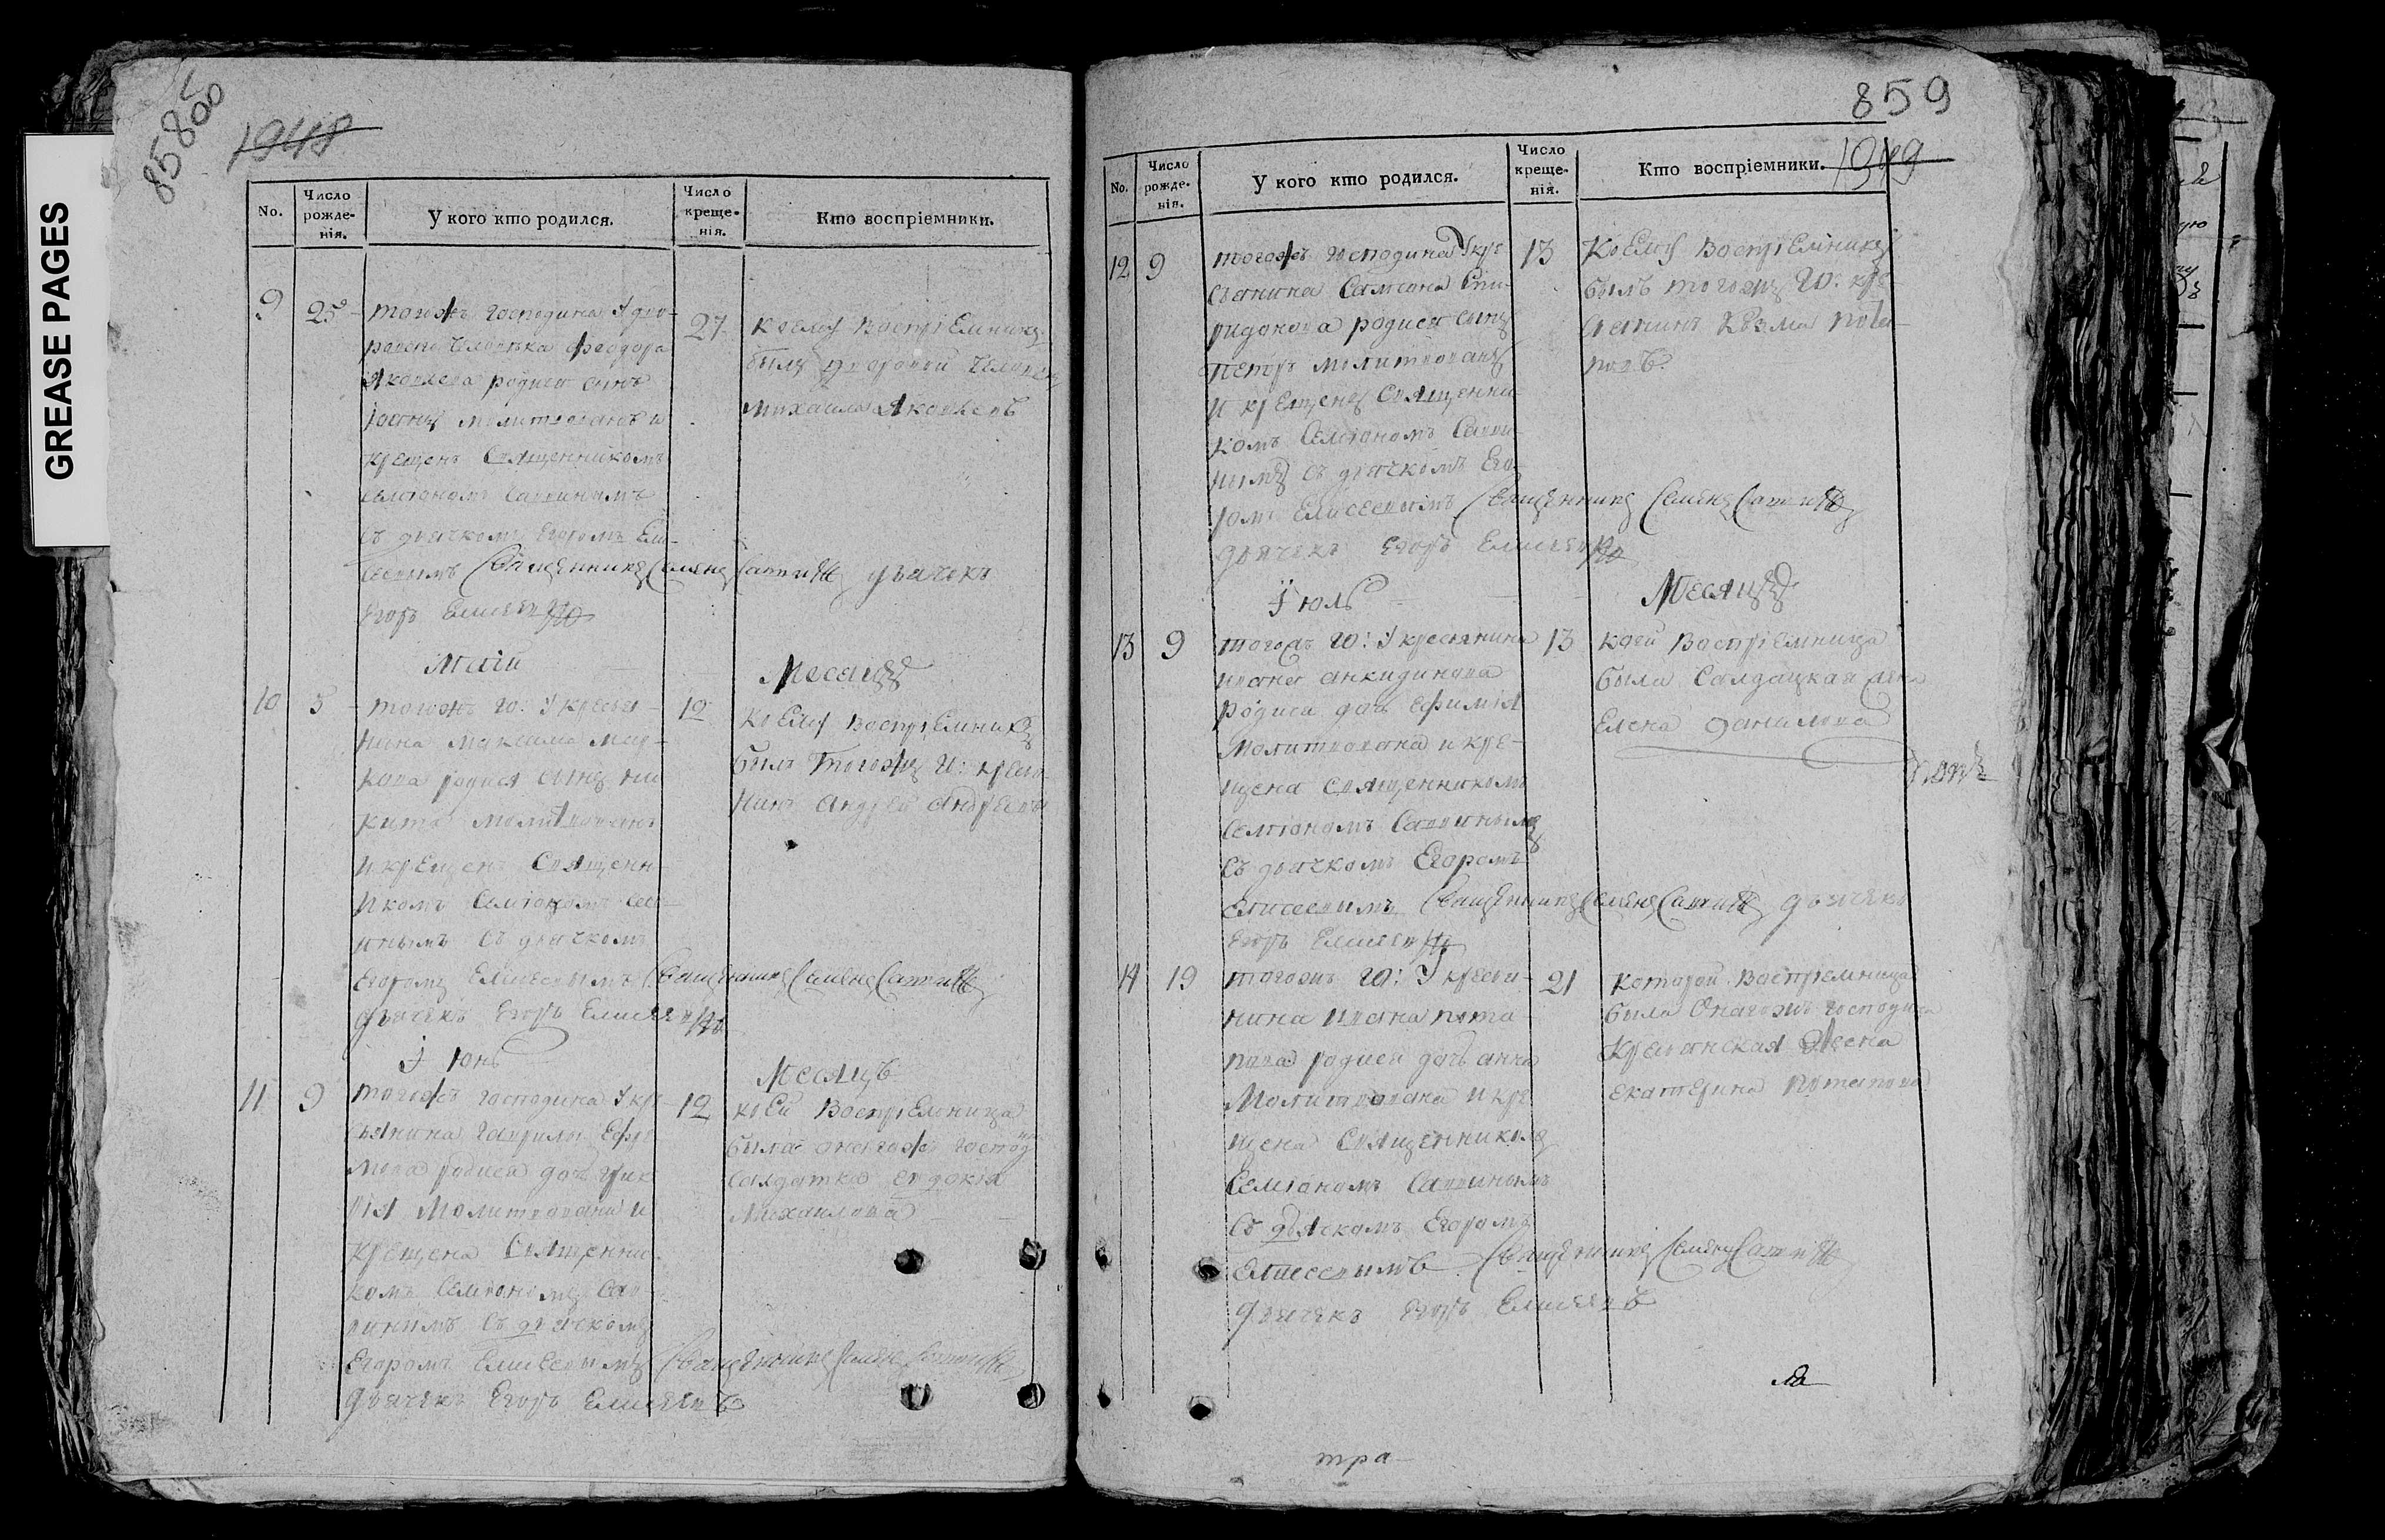 GREASE PAGES
858 об
1948
No.
Число рожде-нія.
У кого кто родился.
Число креще-нія.
Кто воспріемники.
9 25 тогожъ господина У дво-
роваго человѣка феодора
Яковлева родися сынъ
Іоаннъ молитвованъ и
крещенъ Священникомъ
Семіономъ Саввинымъ
съ дьячкомъ Егоромъ Ели-
сеевымъ Священникъ Семенъ Саввинъ дьячекъ
Егоръ Елисеевъ
27 коему воспріЕмникъ
былъ дворовой человекъ
михаила Яковлевъ
Маій Месяцъ
10 5 тогожъ го: У крестья-
нина Максима Мар-
кова родися сынъ ни
кита молитвованъ
и крещенъ Священн
икомъ Семіономъ Сав
инымъ съ дьячкомъ
Егоромъ Елисеевымъ Священникъ Семенъ Саввинъ
дьячекъ Егоръ Елисеевъ
12 коЕму воспріЕмникъ
былъ тогожъ го: кресть
нинъ андрей андреевъ
Іюнь Месяцъ
11 9 тогожъ господина У кре
стьянина гаврилы Ефре
мова родися дочь
молитвована и
крещена Священни-
комъ Семіономъ Сав
винимъ съ дьячкомъ
Егоромъ Елисеевымъ Священникъ Семенъ Саввинъ
дьячекъ Егоръ Елисеевъ
12 коЕй ВоспріЕмница
была онагожъ господ
салдатка евдокія
михаилова
859
1949
No.
Число рожде-нія.
У кого кто родился.
Число креще-нія.
Кто воспріемники.
12 9 тогожъ господина У кре
стьянина Самсона Спи-
ридонова родися сынъ
Петръ молитвованъ
и крЕщенъ Священни
комъ Семіономъ Савви
нымъ съ дьячкомъ Его-
ромъ Елисеевымъ Священникъ Семенъ Саввинъ
дьячекъ Егоръ Елисеевъ
13 КоЕму ВоспріЕмникъ
былъ тогожъ го: кре
стьянинъ козма
Іюль Месяцъ
13 9 тогожъ го: У крестьянина
ивана анкидинова
родися дочь ефимія
молитвована и кре-
щена священникомъ
Семіономъ Саввинымъ
съ дьячкомъ Егоромъ
Елисеевымъ Священникъ Семенъ Саввинъ дьячекъ
Егоръ Елисеевъ
13 коей Воспріемница
была Салдацкая жена
Елена данилова
14 19 тогожъ го: У кресть-
нина ивана пота
пова родися дочь анна
Молитвована и кре
щена Священникомъ
Семіономъ Саввинымъ
съ дьячкомъ Егоромъ
Елисеевымъ Священникъ Семенъ Саввинъ
дьячекъ Егоръ Елисеевъ
21 которой Воспріемница
была Онагожъ господина
Крестьянская Жена
екатерина Потапова
тра